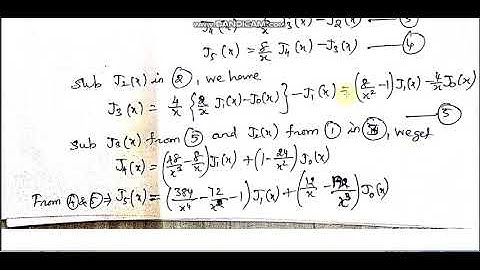 WWW.BANDICAM.COM
J₅(x) = 8/x J₄(x) - J₃(x) — ④
Sub J₂(x) in ②, we have
J₃(x) = 4/x {2/x J₁(x) - J₀(x)} - J₁(x) = (8/x² - 1) J₁(x) - 4/x J₀(x)
— ⑤
Sub J₃(x) from ⑤ and J₂(x) from ① in , we get
J₄(x) = (48/x³ - 8/x) J₁(x) + (1 - 24/x²) J₀(x)
From ④ & ⇒ J₅(x) = (384/x⁴ - 72/x² - 1) J₁(x) + (12/x - 192/x³) J₀(x)